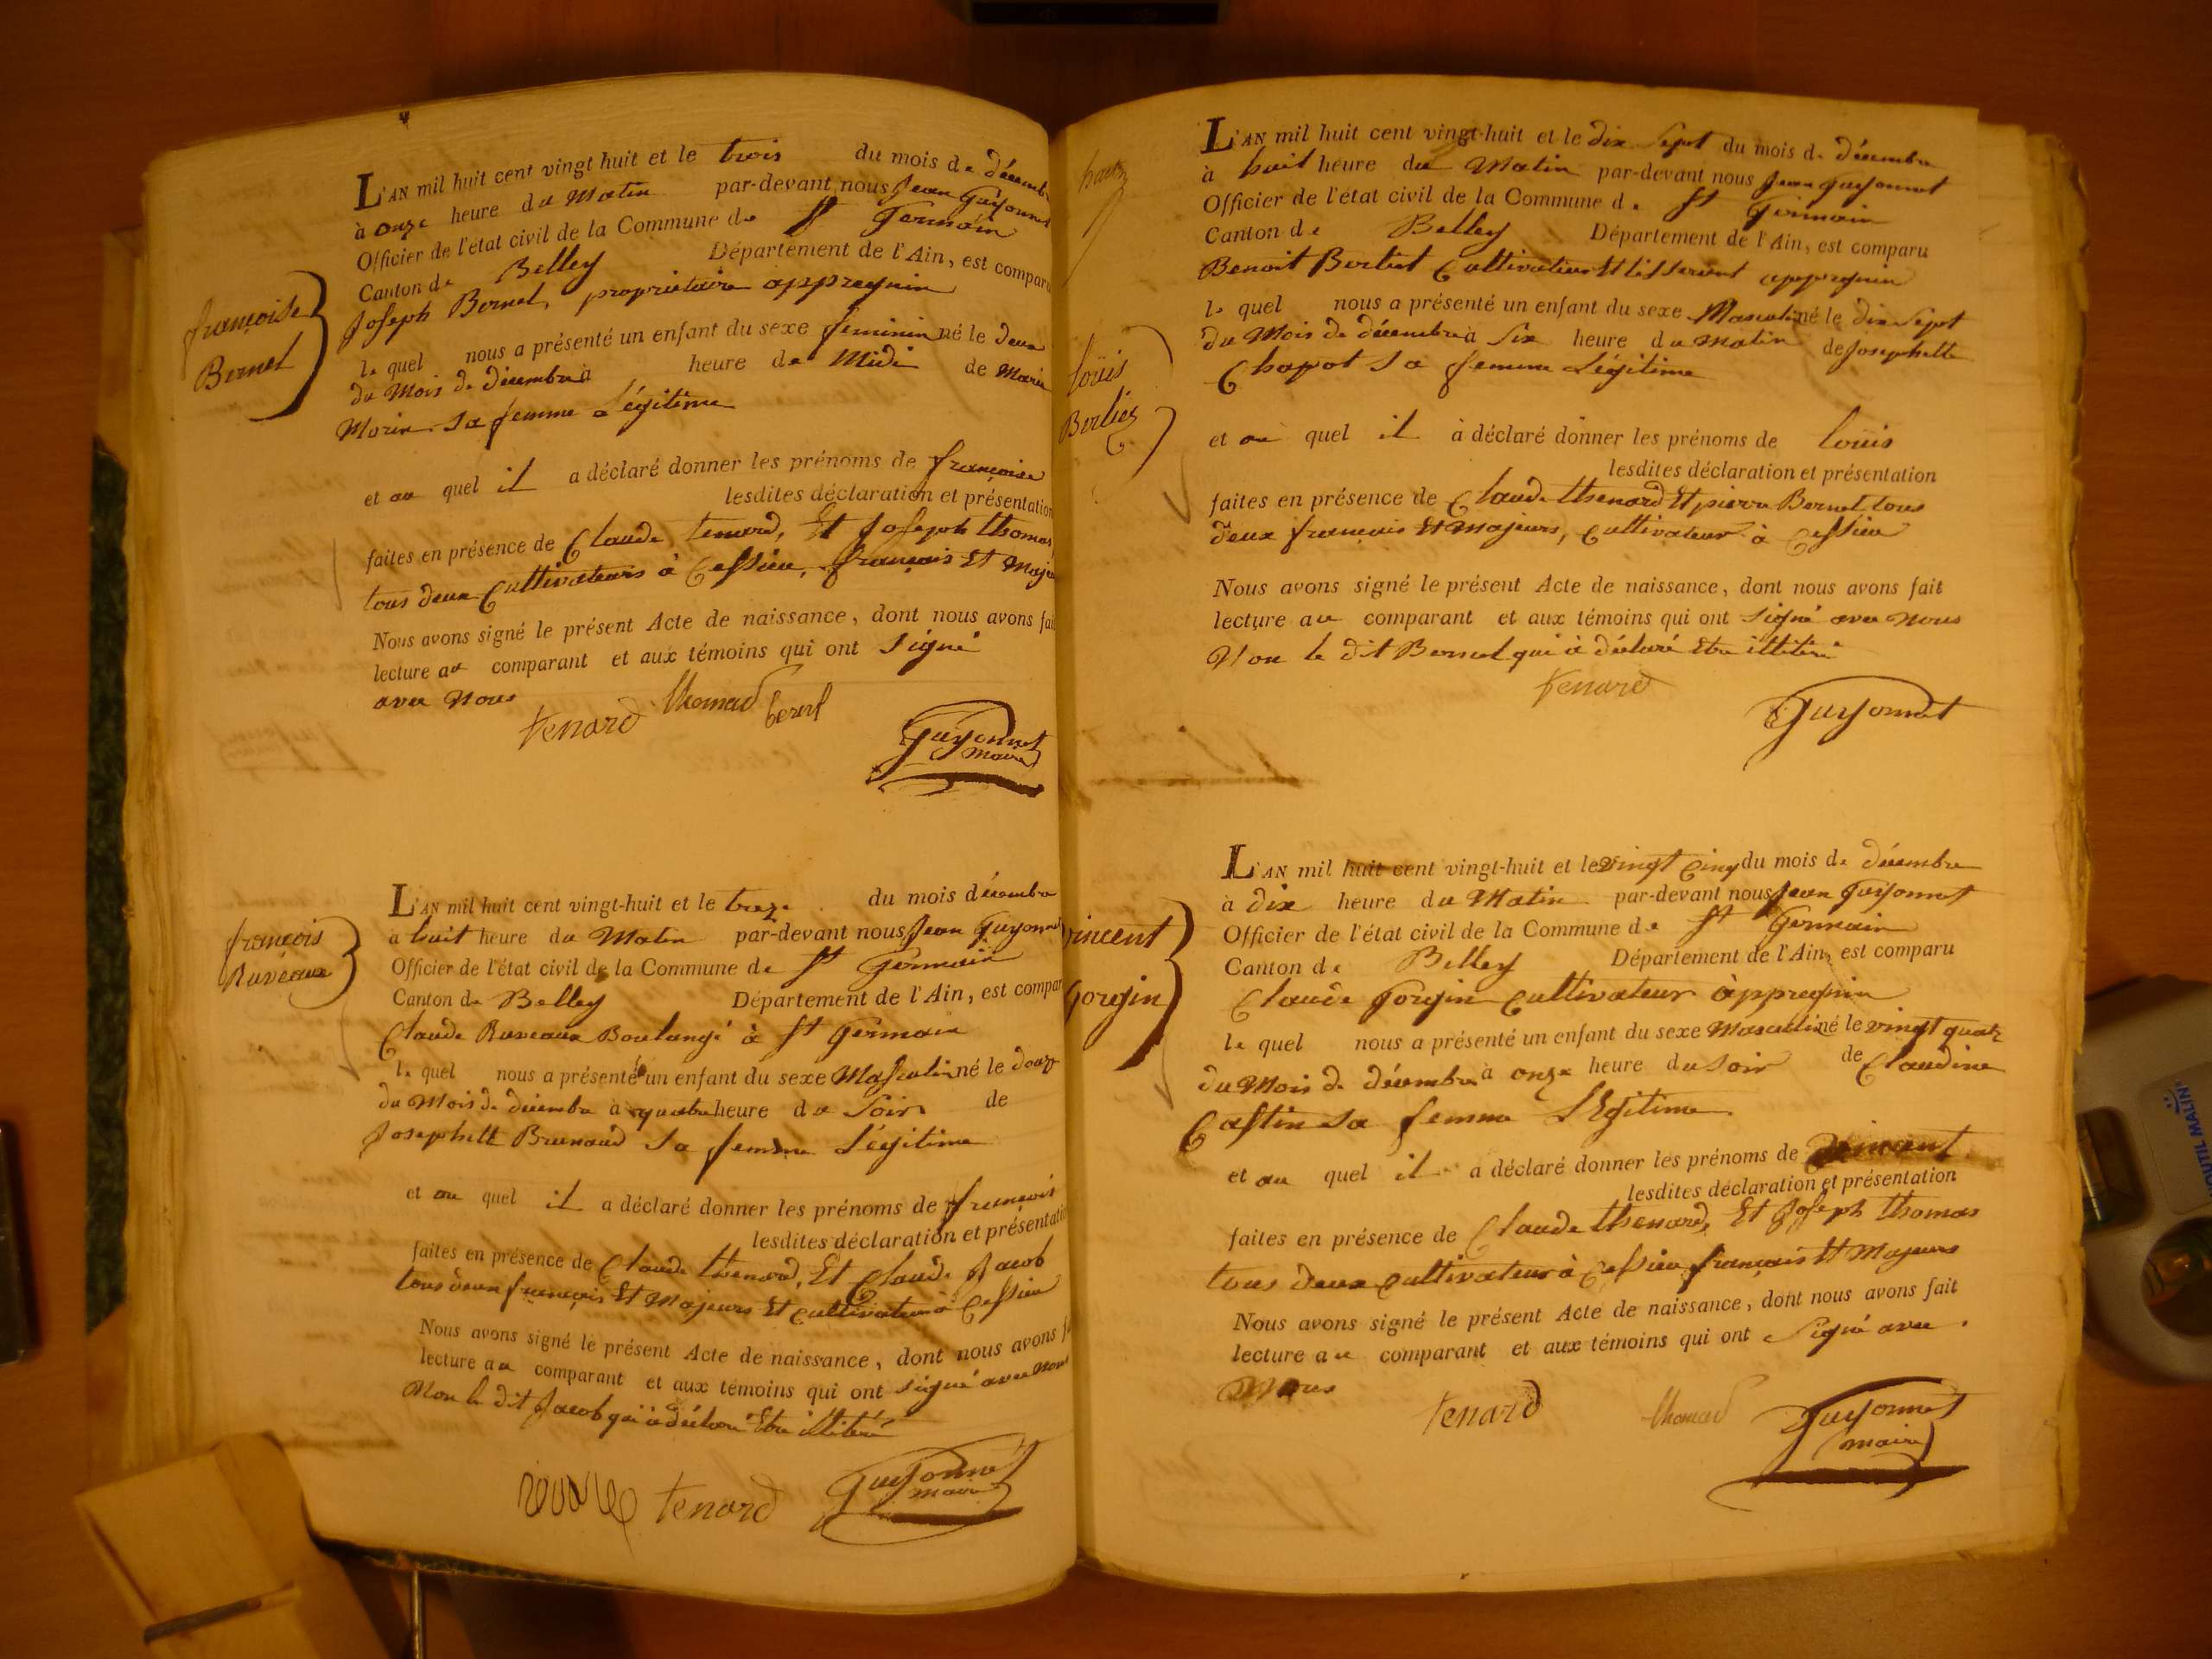 L'AN mil huit cent vingt huit et le trois du mois de décembre
à onze heure du Matin par-devant nous Jean Guyonnet
Officier de l'état civil de la Commune de St Germain
Canton de Belley Département de l'Ain, est comparu
Joseph Bernel, propriétaire appregnin
le quel nous a présenté un enfant du sexe feminin né le deux
du Mois de décembre à heure de Midi de Marie
Morin sa femme Légitime
et au quel il a déclaré donner les prénoms de françoise
lesdites déclaration et présentation
faites en présence de Claude tenard, Et Joseph thomas
tous deux Cultivateurs à Cessieu, français Et Maje
Nous avons signé le présent Acte de naissance, dont nous avons fait
lecture au comparant et aux témoins qui ont signé
avec Nous
tenard thomas
Guyonnet
maire
françoise
Bernel
L'AN mil huit cent vingt-huit et le treze du mois décembre
à huit heure du Matin par-devant nous Jean Guyonnet
Officier de l'état civil de la Commune de St Germain
Canton de Belley Département de l'Ain, est compar
Claude Ruveaux Boulangé à St Germain
le quel nous a présenté un enfant du sexe Masculin né le douze
du Mois de décembre à quatre heure du Soir de
Josephette Brunaud sa femme Légitime
et au quel il a déclaré donner les prénoms de francois
lesdites déclaration et présentatio
faites en présence de Claude thenard, Et Claude Jacob
tous deux français Et Majeurs Et cultivateur à Cessieu
Nous avons signé le présent Acte de naissance, dont nous avons f
lecture au comparant et aux témoins qui ont signé avec nous
Non le dit Jacob qui à déclaré Etre illiteré
tenard
Guyonnet
maire
françois
Ruveaux
L'AN mil huit cent vingt-huit et le dix Sept du mois de décembre
à huit heure du Matin par-devant nous Jean Guyonnet
Officier de l'état civil de la Commune de St Germain
Canton de Belley Département de l'Ain, est comparu
Benoit Berliet Cultivateur Et tisserant appregnin
le quel nous a présenté un enfant du sexe Masculin né le dix Sept
du Mois de décembre à Six heure du matin de Josephette
Chapot sa femme Légitime
et au quel il à déclaré donner les prénoms de loüis
lesdites déclaration et présentation
faites en présence de Claude thenard Et pierre Bernel tous
deux français Et Majeurs, Cultivateur à Cessieu
Nous avons signé le présent Acte de naissance, dont nous avons fait
lecture au comparant et aux témoins qui ont signé avec nous
Non le dit Bernel qui à déclaré Etre illiteré
tenard
Guyonnet
loüis
Berliez
L'AN mil huit cent vingt-huit et le vingt Cinq du mois de décembre
à dix heure du Matin par-devant nous Jean Guyonnet
Officier de l'état civil de la Commune de St Germain
Canton de Belley Département de l'Ain, est comparu
Claude Goujin Cultivateur àppregnin
le quel nous a présenté un enfant du sexe Masculin né le vingt quatr
du Mois de décembre à onze heure du Soir de Claudine
Castin sa femme LEgitime
et au quel il a déclaré donner les prénoms de Vincent
lesdites déclaration et présentation
faites en présence de Claude thenard, Et Joseph thomas
tous deux cultivateur à Cessieu français Et Majeurs
Nous avons signé le présent Acte de naissance, dont nous avons fait
lecture au comparant et aux témoins qui ont signé avec
Nous
tenard thomas Guyonnet
maire
vincent
Goujin
OUTIL MALIN